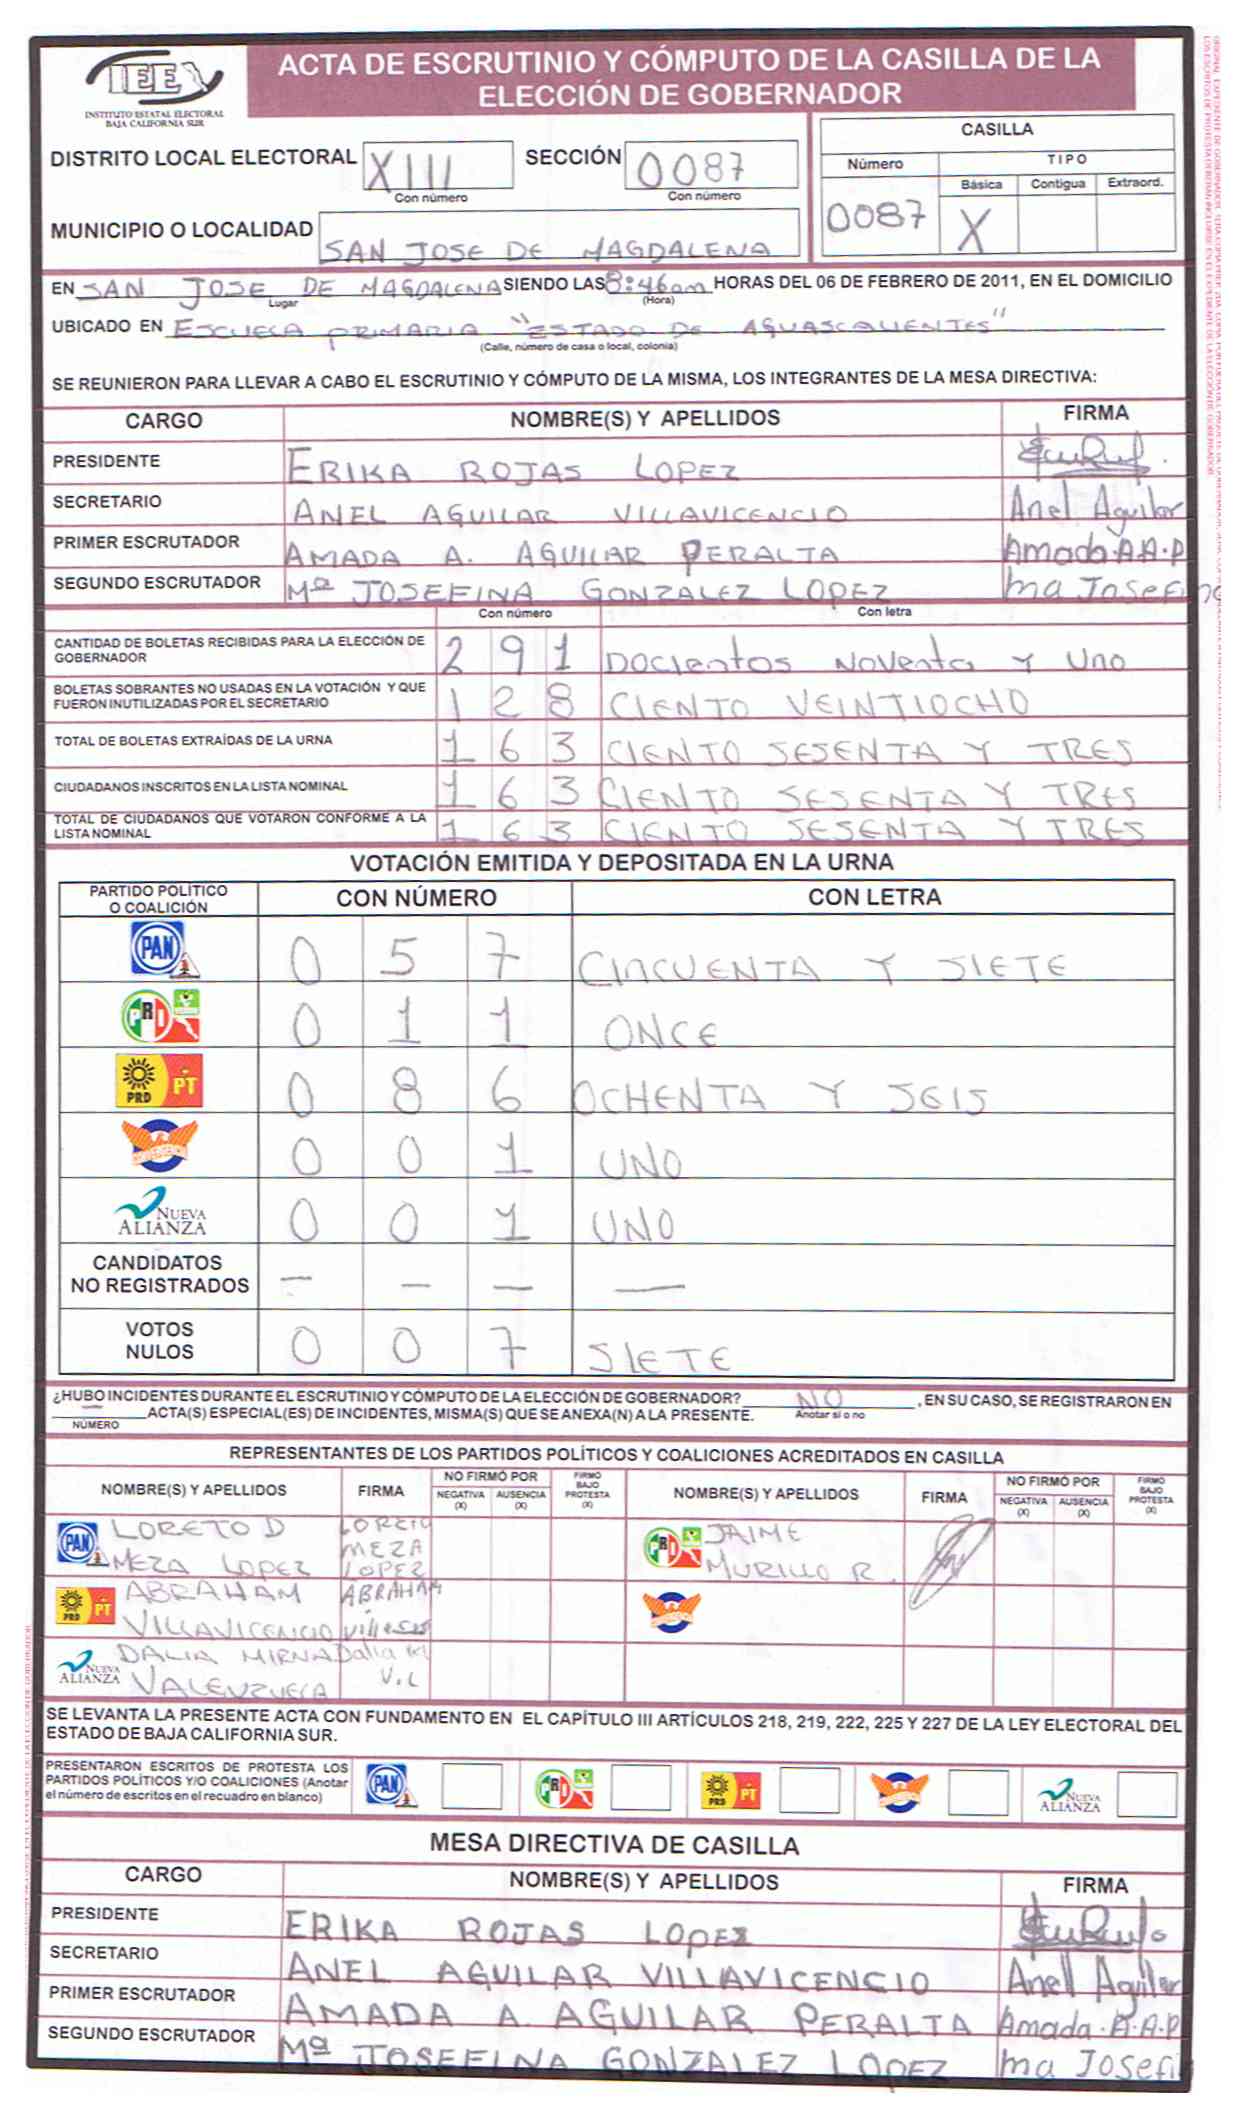 IEE
INSTITUTO ESTATAL ELECTORAL
BAJA CALIFORNIA SUR
ACTA DE ESCRUTINIO Y CÓMPUTO DE LA CASILLA DE LA
ELECCIÓN DE GOBERNADOR
DISTRITO LOCAL ELECTORAL XIII SECCIÓN 0087
Con número Con número
MUNICIPIO O LOCALIDAD SAN JOSE DE MAGDALENA
CASILLA
Número TIPO
Básica Contigua Extraord.
0087 X
EN SAN JOSE DE MAGDALENA SIENDO LAS 8:46am HORAS DEL 06 DE FEBRERO DE 2011, EN EL DOMICILIO
Lugar (Hora)
UBICADO EN ESCUELA PRIMARIA "ESTADO DE AGUASCALIENTES"
(Calle, número de casa o local, colonia)
SE REUNIERON PARA LLEVAR A CABO EL ESCRUTINIO Y CÓMPUTO DE LA MISMA, LOS INTEGRANTES DE LA MESA DIRECTIVA:
CARGO NOMBRE(S) Y APELLIDOS FIRMA
PRESIDENTE ERIKA ROJAS LOPEZ
SECRETARIO ANEL AGUILAR VILLAVICENCIO Anel Aguilar
PRIMER ESCRUTADOR AMADA A. AGUILAR PERALTA Amada.A.A.P
SEGUNDO ESCRUTADOR Mª JOSEFINA GONZALEZ LOPEZ ma Josefina
Con número Con letra
CANTIDAD DE BOLETAS RECIBIDAS PARA LA ELECCIÓN DE
GOBERNADOR 2 9 1 Docientos Noventa y Uno
BOLETAS SOBRANTES NO USADAS EN LA VOTACIÓN Y QUE
FUERON INUTILIZADAS POR EL SECRETARIO 1 2 8 CIENTO VEINTIOCHO
TOTAL DE BOLETAS EXTRAÍDAS DE LA URNA 1 6 3 CIENTO SESENTA Y TRES
CIUDADANOS INSCRITOS EN LA LISTA NOMINAL 1 6 3 CIENTO SESENTA Y TRES
TOTAL DE CIUDADANOS QUE VOTARON CONFORME A LA
LISTA NOMINAL 1 6 3 CIENTO SESENTA Y TRES
VOTACIÓN EMITIDA Y DEPOSITADA EN LA URNA
PARTIDO POLÍTICO
O COALICIÓN CON NÚMERO CON LETRA
PAN 0 5 7 CINCUENTA Y SIETE
PRI 0 1 1 ONCE
PRD PT 0 8 6 OCHENTA Y SEIS
CONVERGENCIA 0 0 1 UNO
NUEVA
ALIANZA 0 0 1 UNO
CANDIDATOS
NO REGISTRADOS — — — —
VOTOS
NULOS 0 0 7 SIETE
¿HUBO INCIDENTES DURANTE EL ESCRUTINIO Y CÓMPUTO DE LA ELECCIÓN DE GOBERNADOR? NO , EN SU CASO, SE REGISTRARON EN
ACTA(S) ESPECIAL(ES) DE INCIDENTES, MISMA(S) QUE SE ANEXA(N) A LA PRESENTE. Anotar sí o no
NÚMERO
REPRESENTANTES DE LOS PARTIDOS POLÍTICOS Y COALICIONES ACREDITADOS EN CASILLA
NOMBRE(S) Y APELLIDOS FIRMA NO FIRMÓ POR NEGATIVA (X) AUSENCIA (X) FIRMÓ BAJO PROTESTA (X) NOMBRE(S) Y APELLIDOS FIRMA NO FIRMÓ POR NEGATIVA (X) AUSENCIA (X) FIRMÓ BAJO PROTESTA (X)
PAN LORETO D LORETO PRI JAIME
MEZA LOPEZ MEZA LOPEZ MURILLO R.
PRD PT ABRAHAM ABRAHAM CONVERGENCIA
VILLAVICENCIO
NUEVA ALIANZA DALIA MIRNA Dalia M
VALENZUELA V.L
SE LEVANTA LA PRESENTE ACTA CON FUNDAMENTO EN EL CAPÍTULO III ARTÍCULOS 218, 219, 222, 225 Y 227 DE LA LEY ELECTORAL DEL
ESTADO DE BAJA CALIFORNIA SUR.
PRESENTARON ESCRITOS DE PROTESTA LOS
PARTIDOS POLÍTICOS Y/O COALICIONES (Anotar
el número de escritos en el recuadro en blanco) PAN PRI PRD PT CONVERGENCIA NUEVA ALIANZA
MESA DIRECTIVA DE CASILLA
CARGO NOMBRE(S) Y APELLIDOS FIRMA
PRESIDENTE ERIKA ROJAS LOPEZ
SECRETARIO ANEL AGUILAR VILLAVICENCIO Anel Aguilar
PRIMER ESCRUTADOR AMADA A. AGUILAR PERALTA Amada.A.A.P
SEGUNDO ESCRUTADOR Mª JOSEFINA GONZALEZ LOPEZ ma Josefi